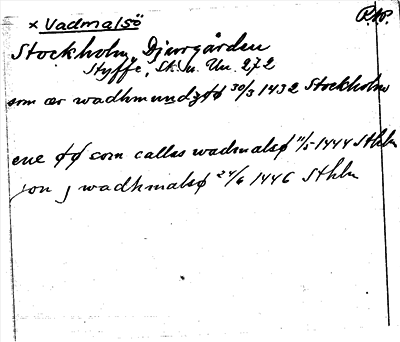 x Vadmalsö
Stockholm, Djurgården
Styffe, Sk. u. Un. 272
som ær wadhmundzøø 30/3 1432 Stockholm
ene øø som callas wadmalsø 11/5 1444 Sthlm
j wadhmalsø 24/6 1446 Sthlm